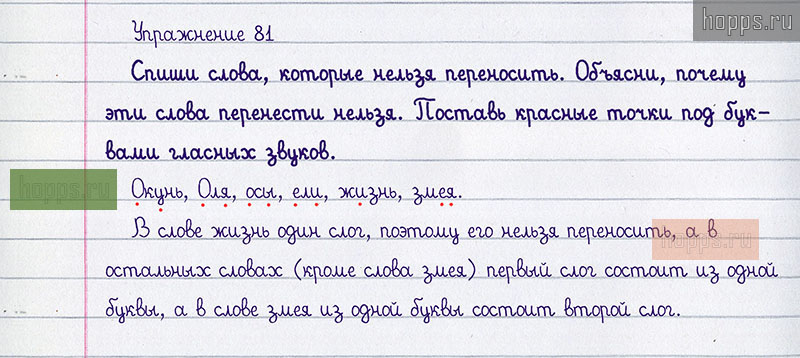 hopps.ru
Упражнение 81
Спиши слова, которые нельзя переносить. Объясни, почему
эти слова перенести нельзя. Поставь красные точки под бук-
вами гласных звуков.
hopps.ru
Окунь, Оля, осы, ели, жизнь, змея.
В слове жизнь один слог, поэтому его нельзя переносить, а в
hopps.ru
остальных словах (кроме слова змея) первый слог состоит из одной
буквы, а в слове змея из одной буквы состоит второй слог.